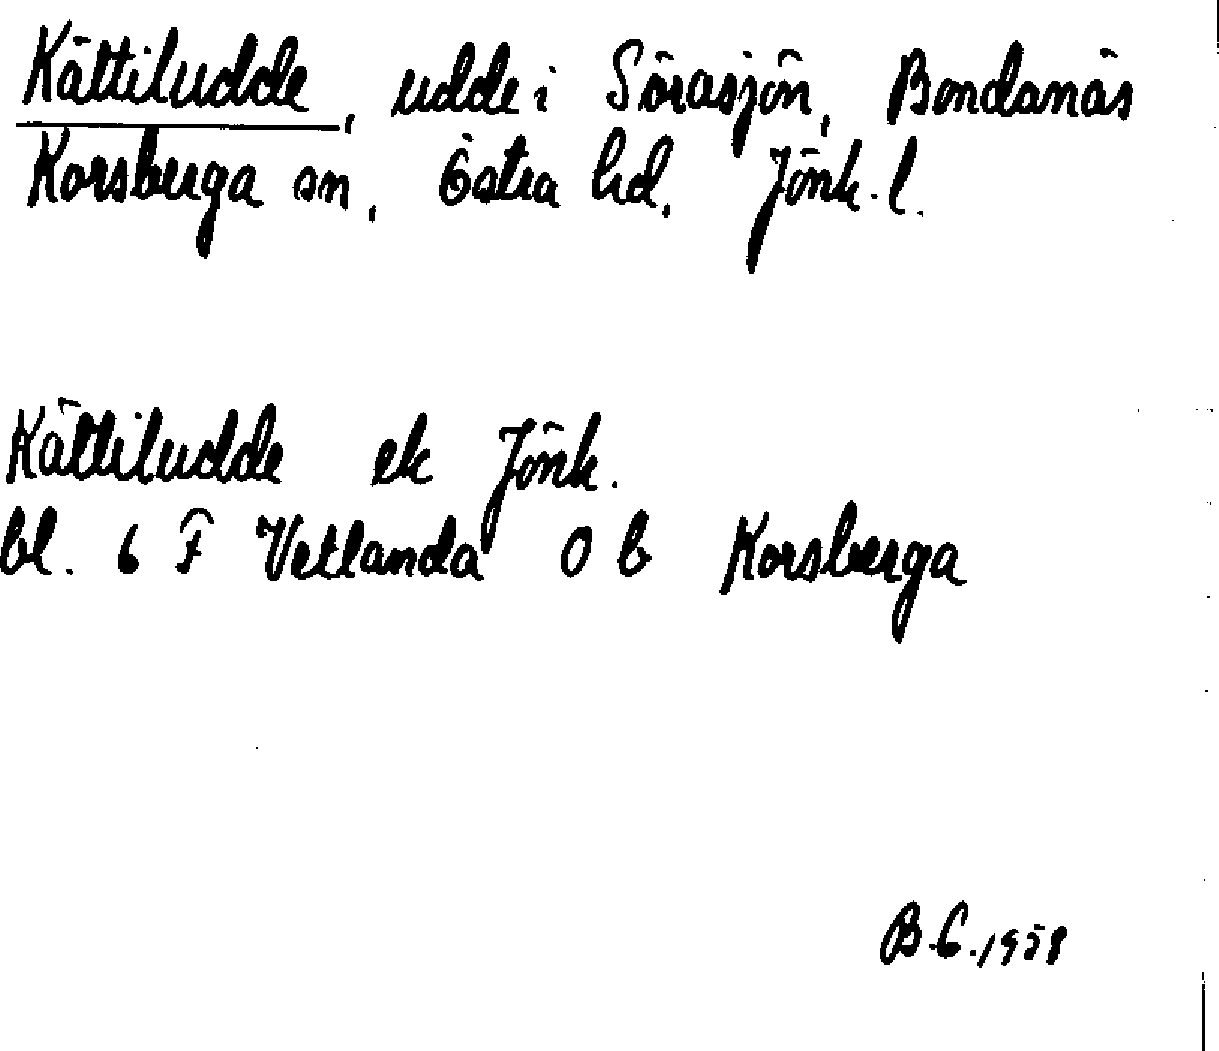 Kättiludde, udde i Sörasjön, Bondanäs
Korsberga sn, Östra hd, Jönk. l.
Kättiludde ek Jönk.
bl. 6 F Vetlanda 0 b Korsberga
B.G. 1958